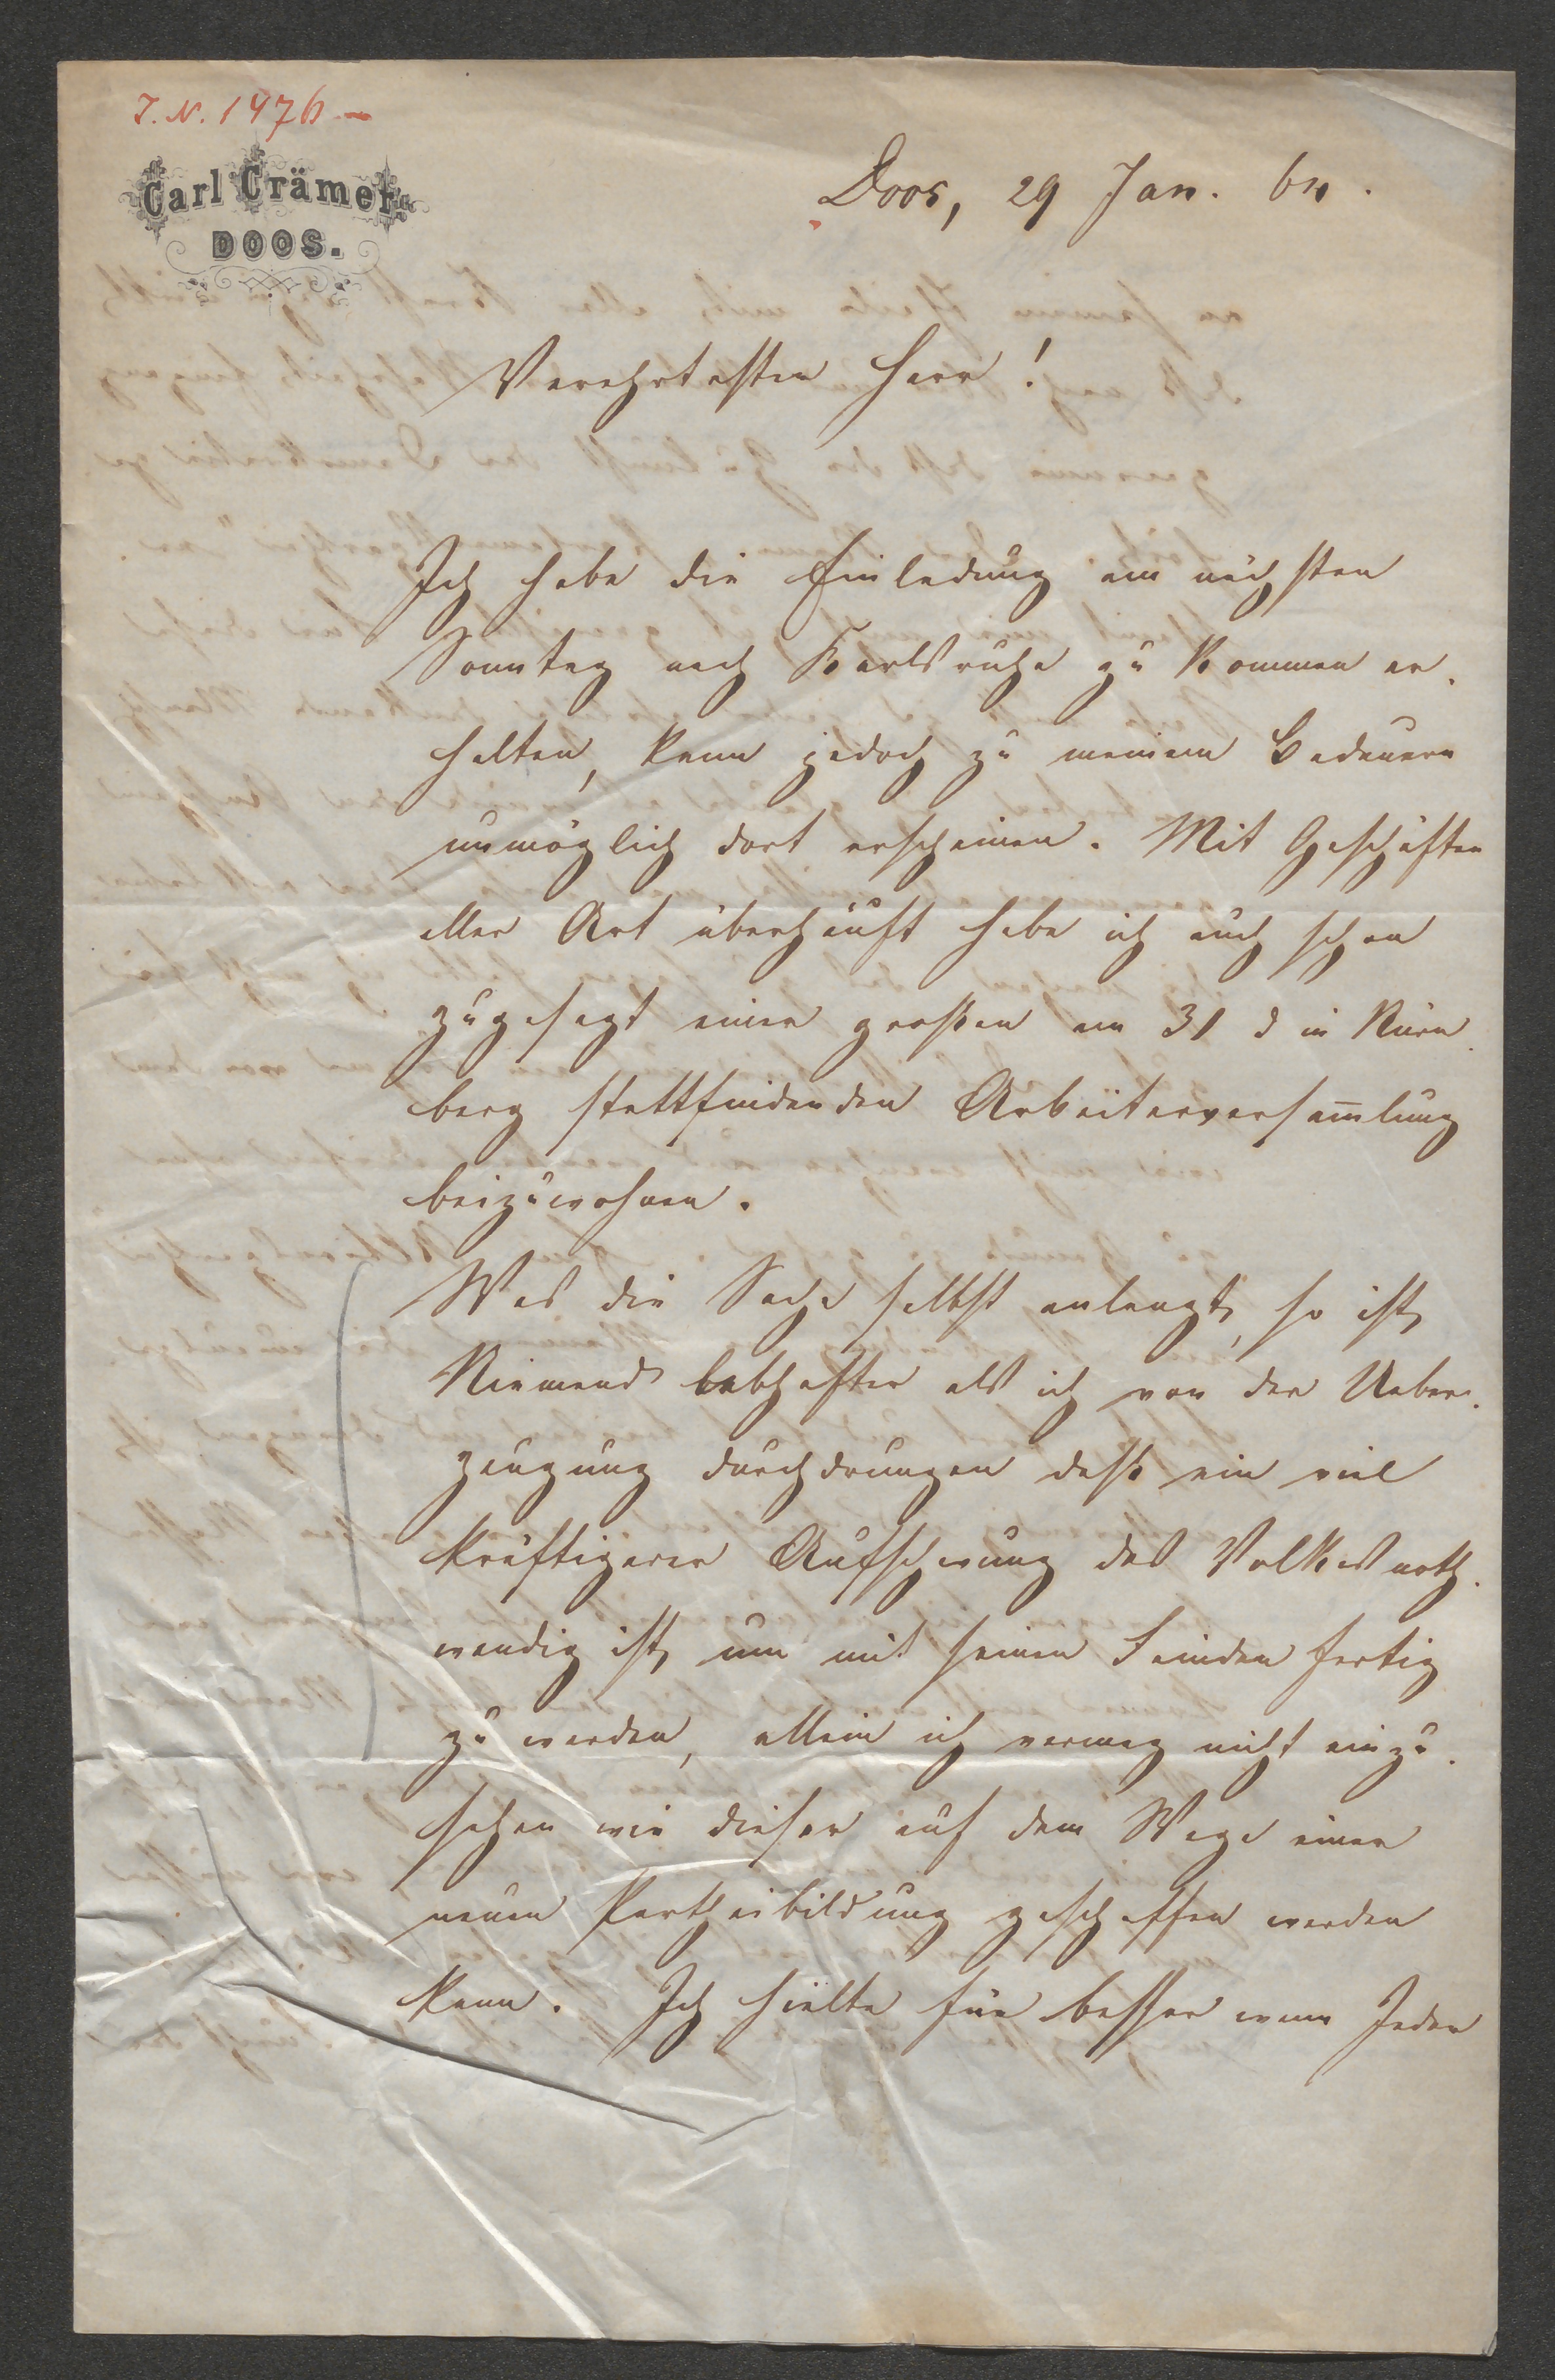 J. N. 1476
Carl Crämer
DOOS.
Doos, 29 Jan. 64.
Verehrtester Herr!
Ich habe die Einladung am nächsten
Sonntag nach Karlsruhe zu kommen er-
halten, kann jedoch zu meinem Bedauern
unmöglich dort erscheinen. Mit Geschäften
aller Art überhäuft habe ich auch schon
zugesagt einer großen am 31 d in Nürn-
berg stattfindenden Arbeiterversam̅lung
beizuwohnen.
Was die Sache selbst anlangt, so ist
Niemand lebhafter als ich von der Ueber-
zeugung durchdrungen daß ein viel
kräftigerer Aufschwung des Volkes noth-
wendig ist, um mit seinen Feinden fertig
zu werden, allein ich vermag nicht einzu-
sehen wie dieser auf dem Wege einer
neuen Partheibildung geschaffen werden
kann. Ich hielte für besser wenn Jeder